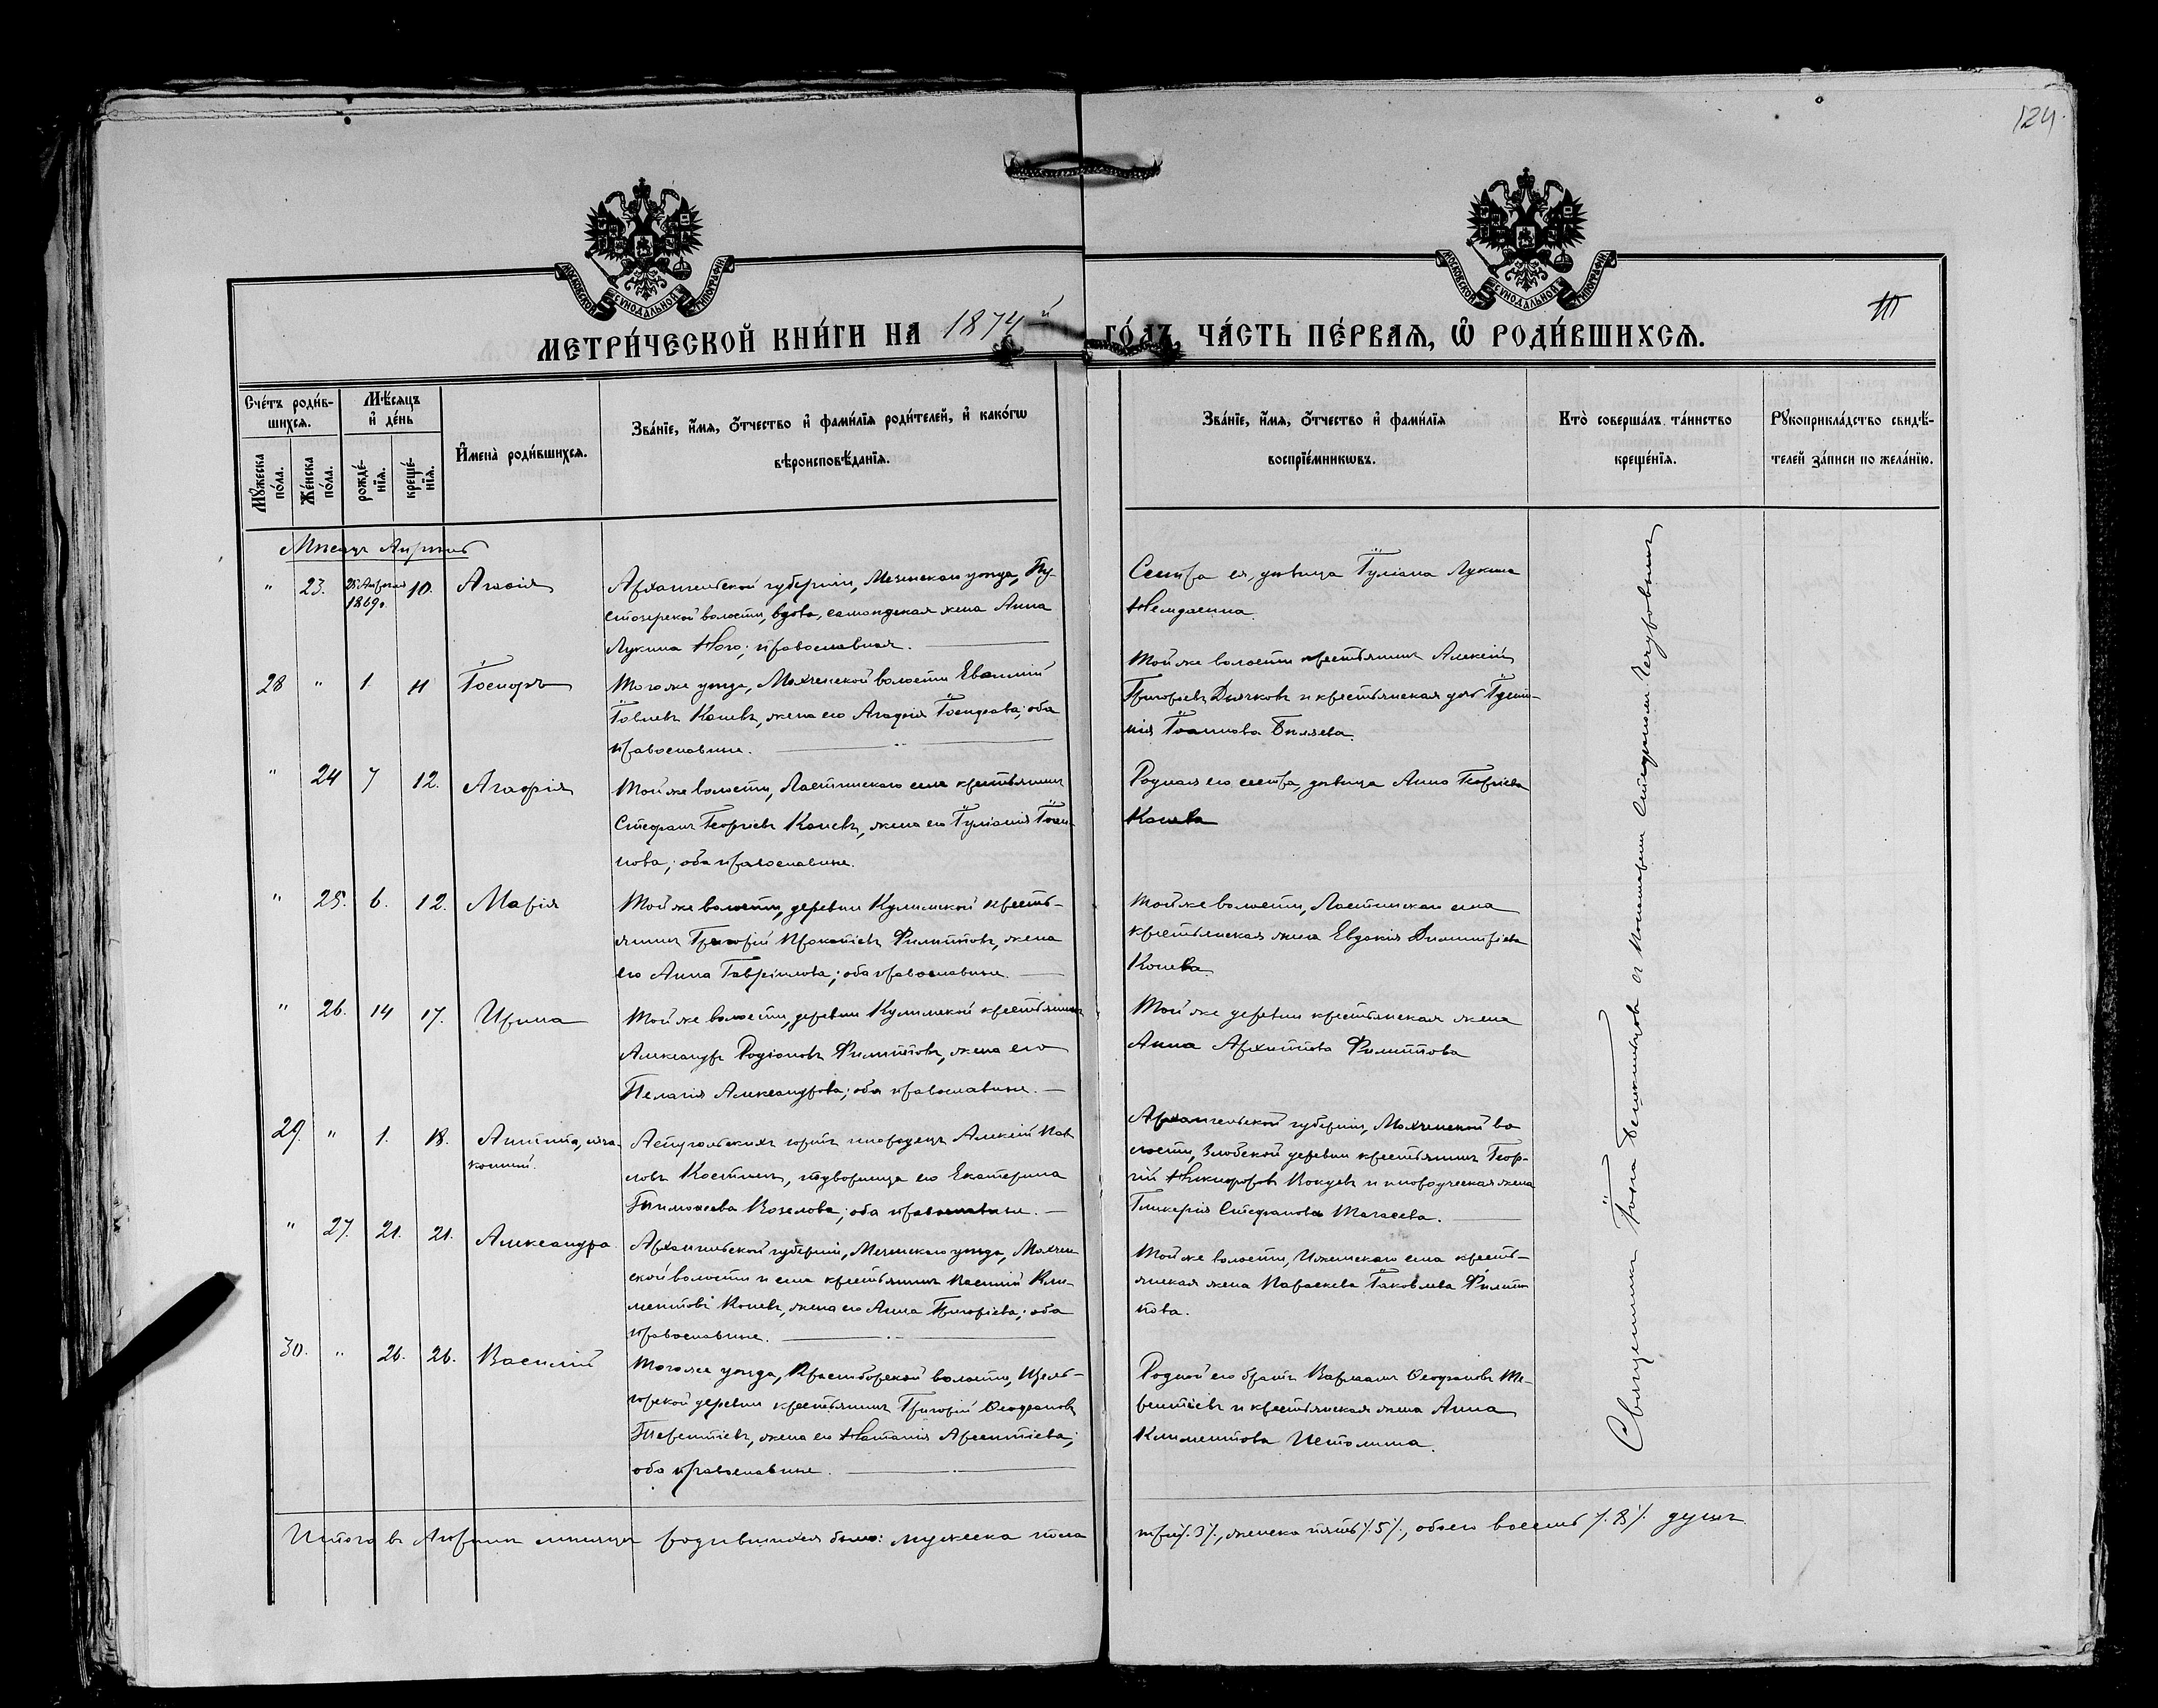 124.
МОСКОВСКОЙ СѴНОДАЛЬНОЙ ТИПОГРАФІИ
МОСКОВСКОЙ СѴНОДАЛЬНОЙ ТИПОГРАФІИ
МЕТРИ́ЧЕСКОЙ КНИ́ГИ НА 1874й ГО́ДЪ, ЧА́СТЬ ПЕ́РВАЯ, Ѡ҆ РОДИ́ВШИХСЯ.
Сче́тъ роди́в-
шихся.
Мꙋ́жеска по́ла.
Же́нска по́ла.
Мѣ́сяцъ
и҆ де́нь
рожде́-
нїя.
креще́-
нїя.
И҆мена̀ роди́вшихся.
Зва́нїе, и҆́мя, ѻ҆́тчество и҆ фами́лїя роди́телей, и҆ како́гѡ
вѣроисповѣ́данїя.
Зва́нїе, и҆́мя, ѻ҆́тчество и҆ фами́лїя
воспрїе́мникѡвъ.
Кто̀ соверша́лъ та́инство
креще́нїя.
Рꙋкоприкла́дство свидѣ́-
телей за́писи по жела́нїю.
Мѣсяцъ Апрѣль
" 23. 25 Апрѣля 1869г. 10. Агаѳія
Архангельской губерніи, Мезенскаго уѣзда, Пу-
стозерской волости, вдова, самоѣдская жена Анна
Лукина Ного; православная.
Сестра ея, дѣвица Іуліана Лукина
28 " 1. 11 Іосифъ
Тогоже уѣзда, Мохченской волости Евѳимій
Іовлевъ Каневъ, жена его Агафія Іосифова; оба
православные.
Тойже волости крестьянинъ Алексѣй
Григорьевъ Дьячковъ и крестьянская дочь
Іоаннова Биляева.
" 24 7 12. Агафія
Тойже волости, Ластинскаго села крестьянинъ
Стефанъ Георгіевъ Каневъ, жена его Іуліанія Іоан-
нова; оба православные.
Родная его сестра, дѣвица Анна Георгіева
Канева
" 25. 6. 12. Марія
Тойже волости, деревни Кулимской кресть-
янинъ Григорій Прокопіевъ Филипповъ, жена
его Анна Гавріилова; оба православные.
Тойже волости, Ластинскаго села
крестьянская жена Евдокія Димитріева
Конева.
" 26. 14 17. Ирина
Той же волости, деревни Кулимской крестьянинъ
Александръ Родіоновъ Филипповъ, жена его
Пелагія Александрова; оба православные.
Той же деревни крестьянская жена
Анна Архиппова Филиппова
29. " 1. 18. Антипа, неза-
конный.
юртъ инородецъ Алексѣй Пав-
ловъ Костинъ, подворница его Екатерина
Тимоѳеева Козелова; оба православные.
Архангельской губерніи, Мохченской во-
лости, деревни крестьянинъ Геор-
гій Никифоровъ и инородческая жена
Гликерія Стефанова
" 27. 21. 21. Александра
Архангельской губерніи, Мезенскаго уѣзда, Мохчен-
ской волости и села крестьянинъ Василій Кли-
ментовъ Коневъ, жена его Анна Григоріева; оба
православные.
Той же волости, Ижемскаго села кресть-
янская жена Параскева Іаковлева Филип-
пова.
30. " 26. 26. Василій
Тогоже уѣзда, Красноборской волости, Щель-
юрской деревни крестьянинъ Григорій Ѳеофановъ
Терентіевъ, жена его Наталія Арсентіева;
оба православные.
Родной его братъ Варлаамъ Ѳеофановъ Те-
рентіевъ и крестьянская жена Анна
Климентова Истомина.
Священникъ съ Псаломщикомъ
Итого въ Апрѣлѣ мѣсяцѣ родившихся было: мужеска пола
три /.3/., женска пять /.5/., обоего восемь /.8/. душъ